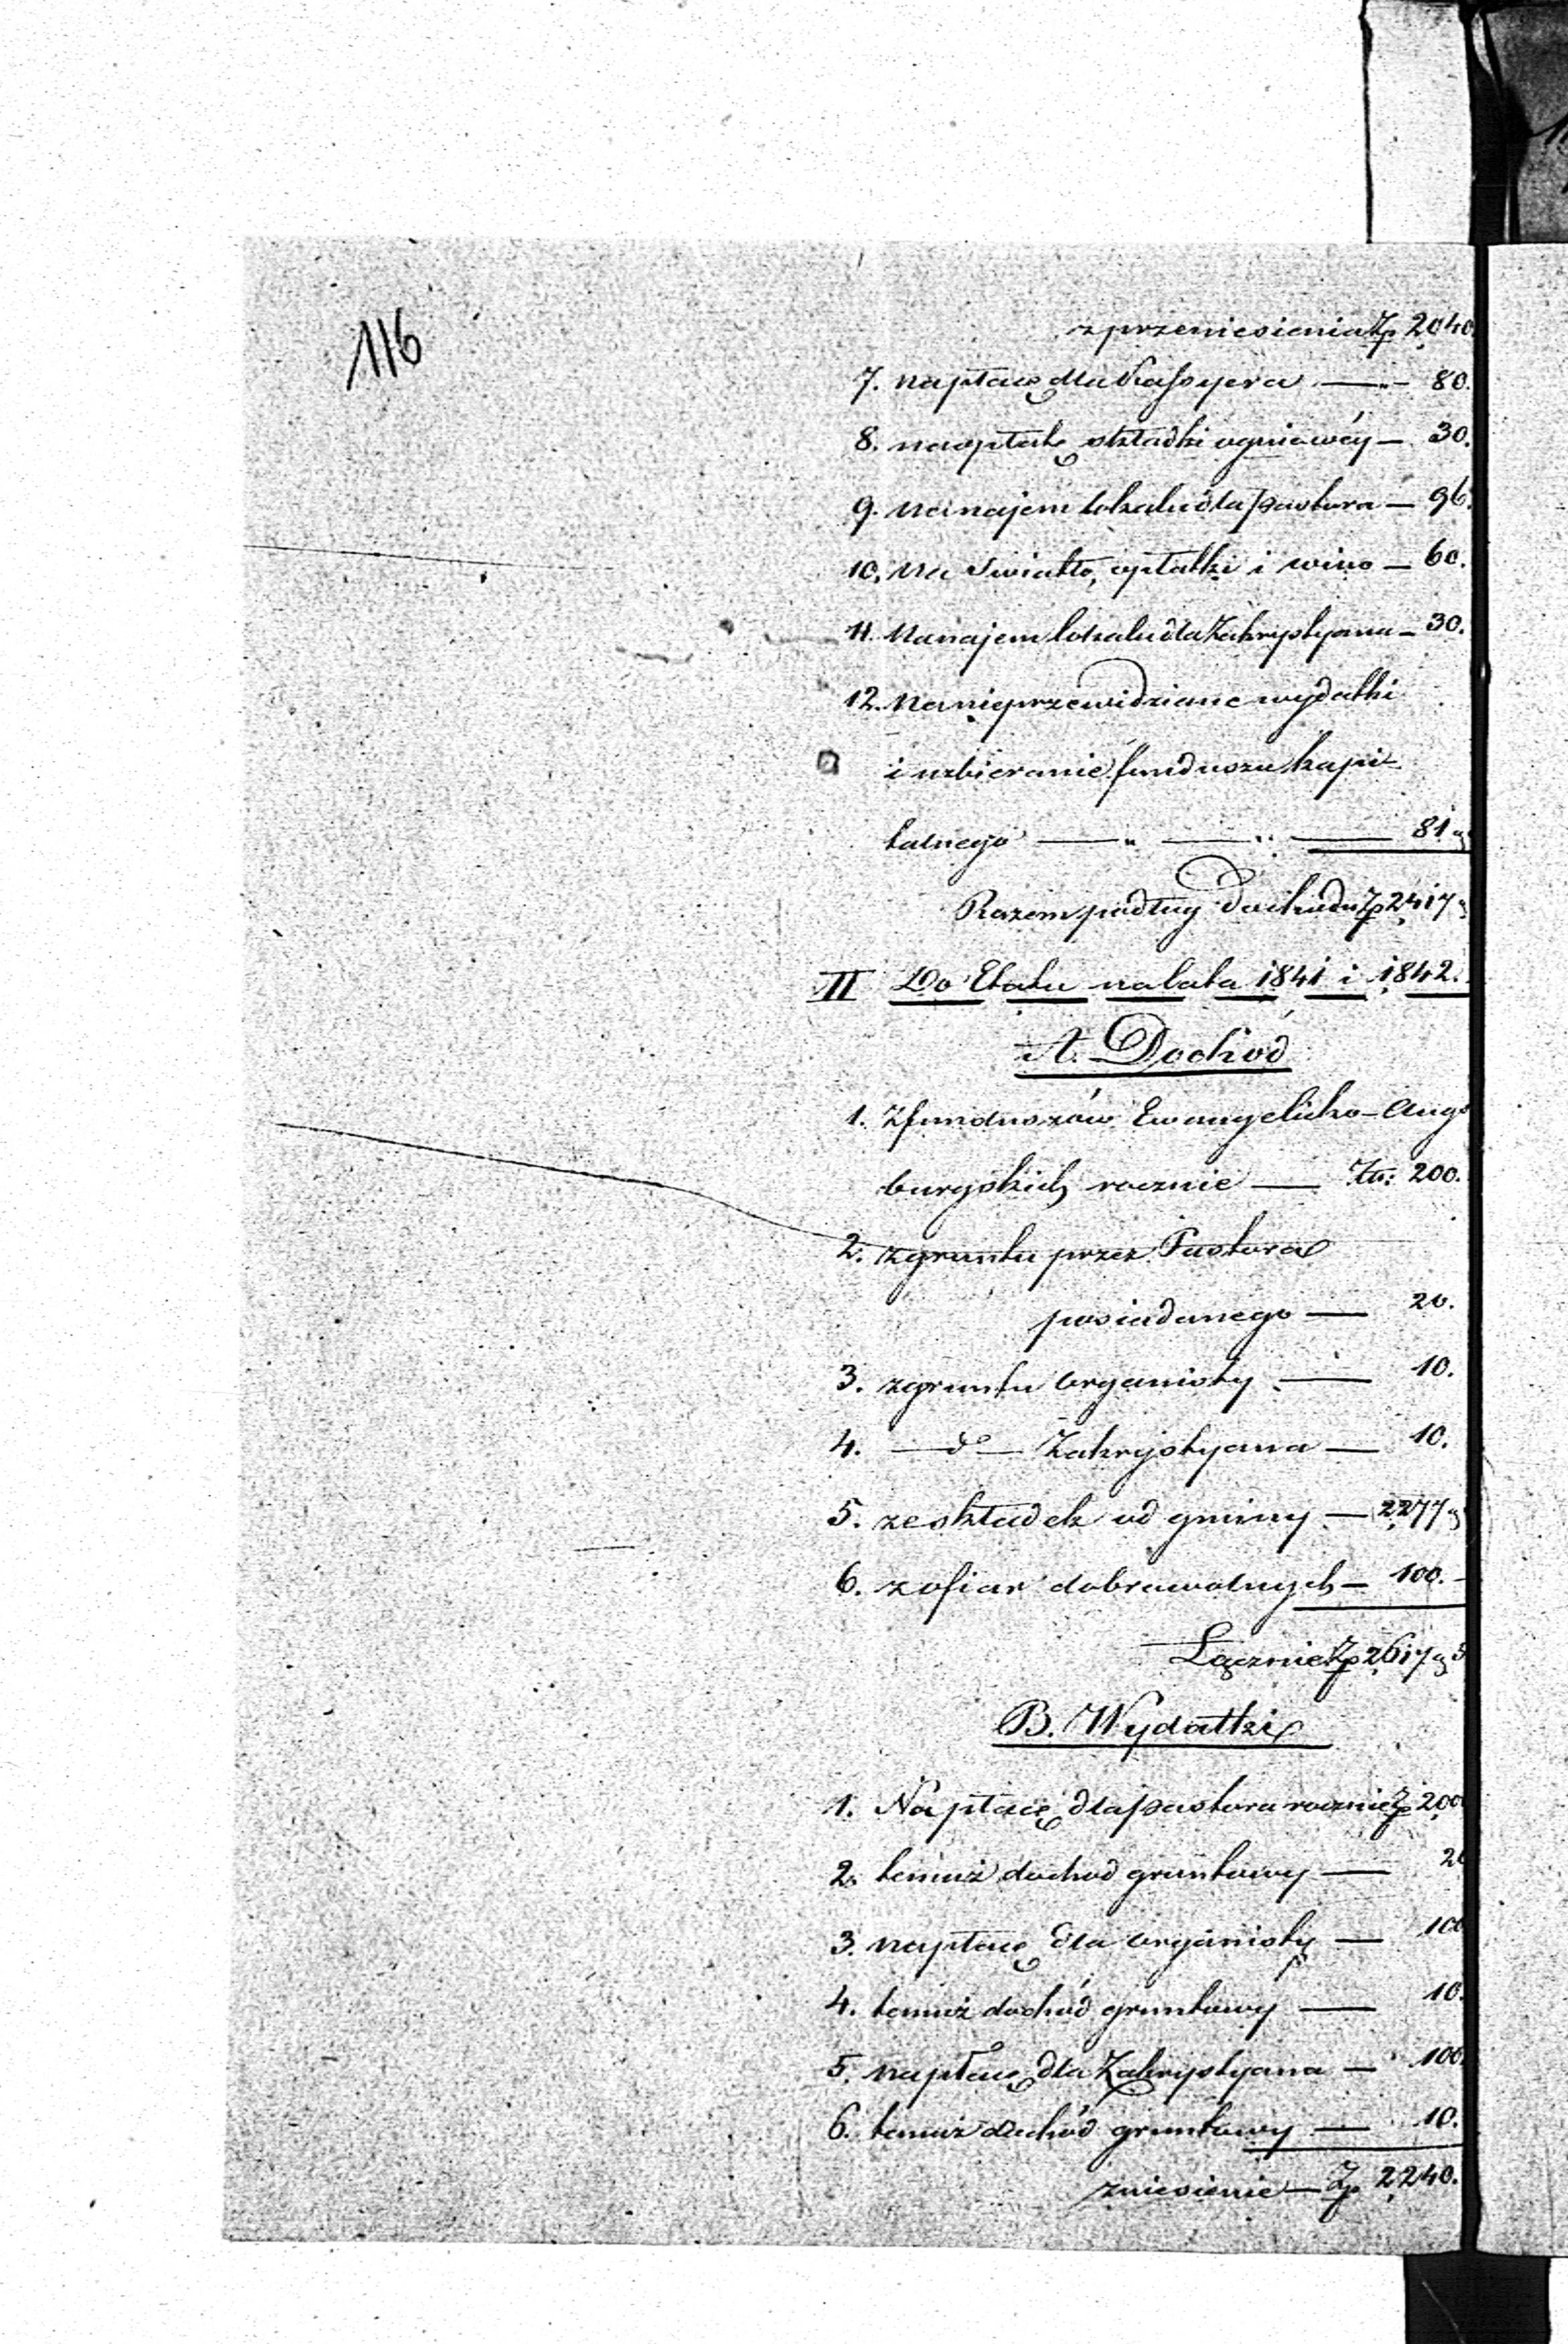 116
z przeniesienia Zp 2040.
7. na płacę dla Kassyera — „ — 80.
8. na opłatę składki ogniowéy — 30.
9. na najem lokalu dla pastora — 96.
10. na światło, opłatki i wino — 60.
11. Na najem lokalu dla Zakrystyana — 30.
12. na nieprzewidziane wydatki
i uzbieranie funduszu kapi-
talnego — „ — „ — 81 g
Razem podług Dochodu Zp 2417 g
II Do Etatu na lata 1841 i 1842.
A. Dochód
1. Z funduszów Ewangelicko-Augs
burgskich rocznie — Zło: 200.
2. z gruntu przez Pastora
posiadanego — 20.
3. z gruntu organisty — 10.
4. — do — Zakrystyana — 10.
5. ze składek od gminy — 2277 g
6. z ofiar dobrowolnych — 100. —
Łącznie Zp 2617 g 5
B. Wydatki
1. Na płacę dla pastora rocznie Zp 2000
2. temuż dochod gruntowy — 20
3. na płacę dla organisty — 100
4. temuż dochód gruntowy — 10.
5. na płacę dla Zakrystyana — 100.
6. temuż dochód gruntowy — 10.
zniesienie — Zp 2240.